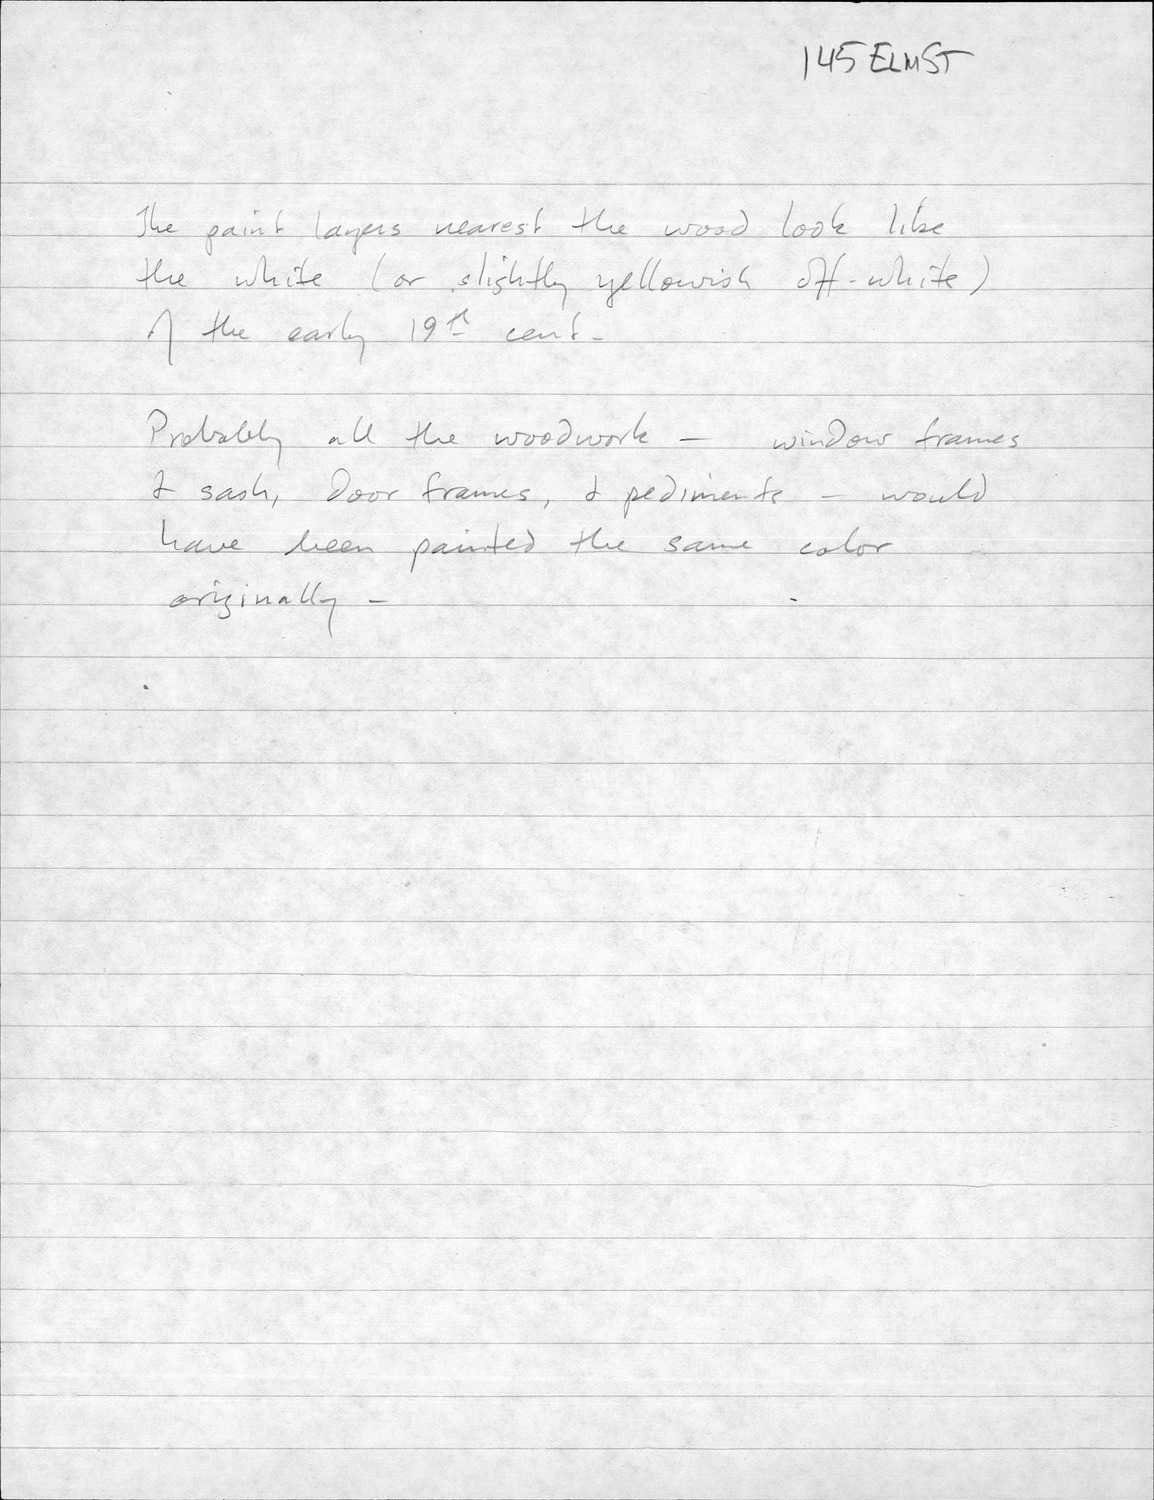 145 ELM ST
The paint layers nearest the wood look like
the white (or slightly yellowish off-white)
of the early 19th cent.
Probably all the woodwork — window frames
& sash, door frames, & pediments — would
have been painted the same color
originally —